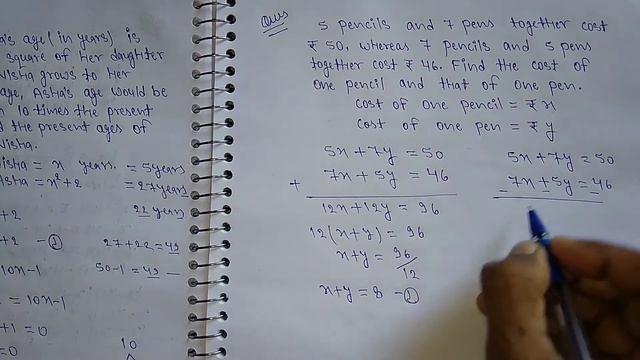 's age (in years) is
square of her daughter
Nisha grows to her
age, Asha's age would be
10 times the present
the present ages of
Nisha.
Nisha = x years. = 5years
Asha = x²+2 = 27years
22 years
+2
+2 -①
27+22 = 49
10x-1
50-1 = 49
= 10x-1
+1 = 0
= 0
10
Ques
5 pencils and 7 pens together cost
₹ 50, whereas 7 pencils and 5 pens
together cost ₹ 46. Find the cost of
one pencil and that of one pen.
cost of one pencil = ₹ x
cost of one pen = ₹ y
5x+7y = 50
+ 7x+5y = 46
12x+12y = 96
12(x+y) = 96
x+y = 96/12
x+y = 8 -①
5x+7y = 50
-7x+5y = -46